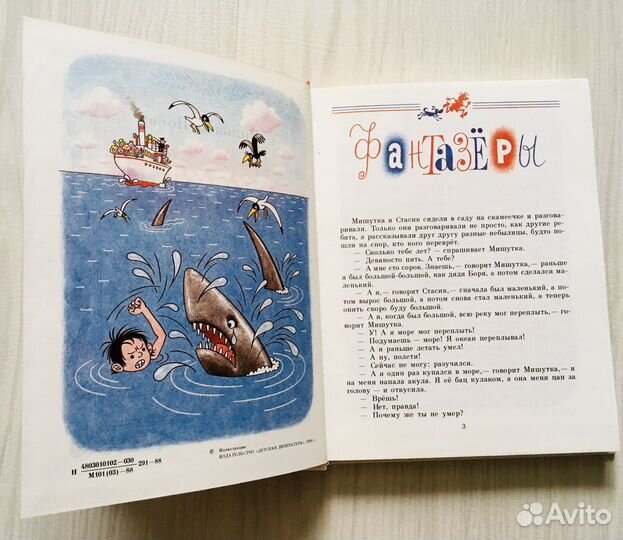 Н 4803010102—030 291—88
М101(03)—88
© Иллюстрации.
ИЗДАТЕЛЬСТВО «ДЕТСКАЯ ЛИТЕРАТУРА»,
ФАНТАЗЁРЫ
Мишутка и Стасик сидели в саду на скамеечке и разгова-
ривали. Только они разговаривали не просто, как другие ре-
бята, а рассказывали друг другу разные небылицы, будто по-
шли на спор, кто кого переврёт.
— Сколько тебе лет? — спрашивает Мишутка.
— Девяносто пять. А тебе?
— А мне сто сорок. Знаешь,— говорит Мишутка,— раньше
я был большой-большой, как дядя Боря, а потом сделался ма-
ленький.
— А я,— говорит Стасик,— сначала был маленький, а по-
том вырос большой, а потом снова стал маленький, а теперь
опять скоро буду большой.
— А я, когда был большой, всю реку мог переплыть,— го-
ворит Мишутка.
— У! А я море мог переплыть!
— Подумаешь — море! Я океан переплывал!
— А я раньше летать умел!
— А ну, полети!
— Сейчас не могу: разучился.
— А я один раз купался в море,— говорит Мишутка,— и
на меня напала акула. Я её бац кулаком, а она меня цап за
голову — и откусила.
— Врёшь!
— Нет, правда!
— Почему же ты не умер?
3
Avito